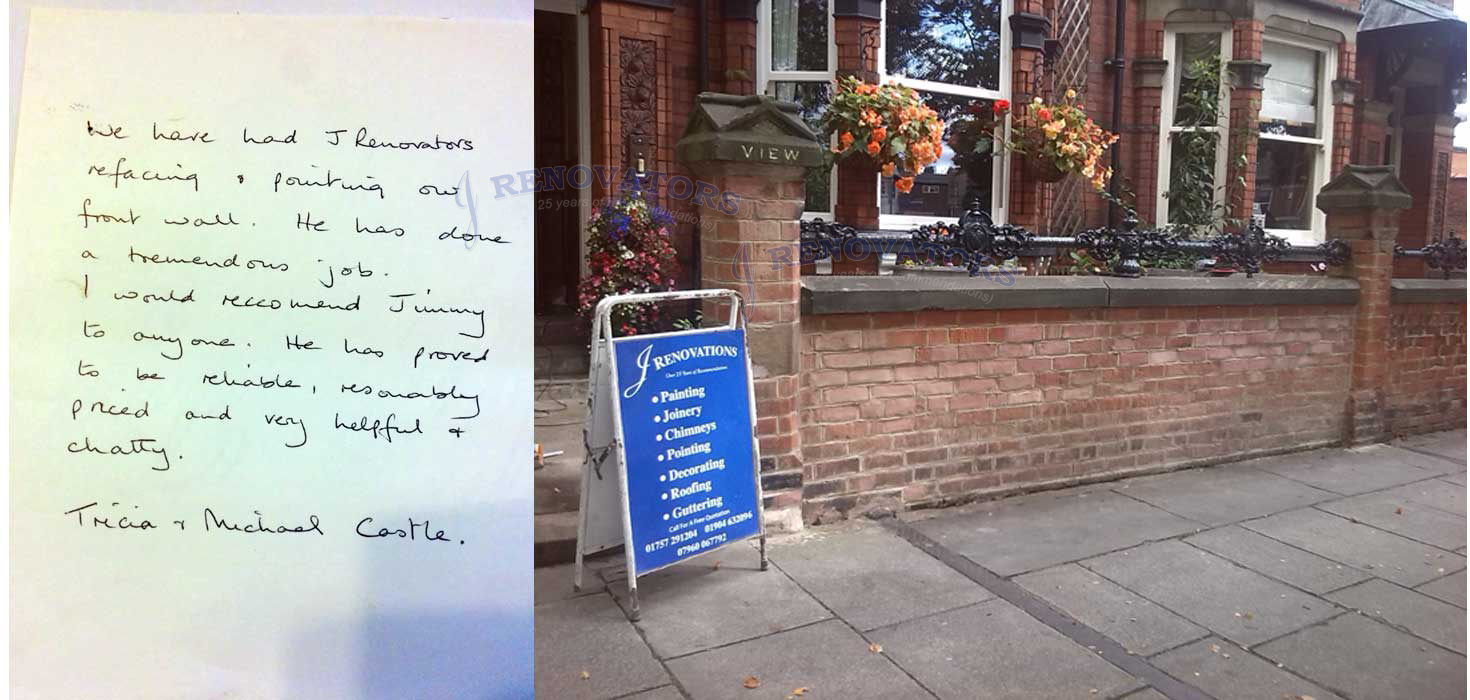 We have had J Renovators
refacing & pointing our
front wall. He has done
a tremendous job.
I would reccomend Jimmy
to anyone. He has proved
to be reliable, resonably
priced and very helpful &
chatty.
Tricia & Michael Castle.
VIEW
J RENOVATORS
25 years of recommendations)
J RENOVATORS
J RENOVATIONS
Over 25 Years of Recommendations
• Painting
• Joinery
• Chimneys
• Pointing
• Decorating
• Roofing
• Guttering
Call For A Free Quotation
01757 291204 01904 632096
07960 067792